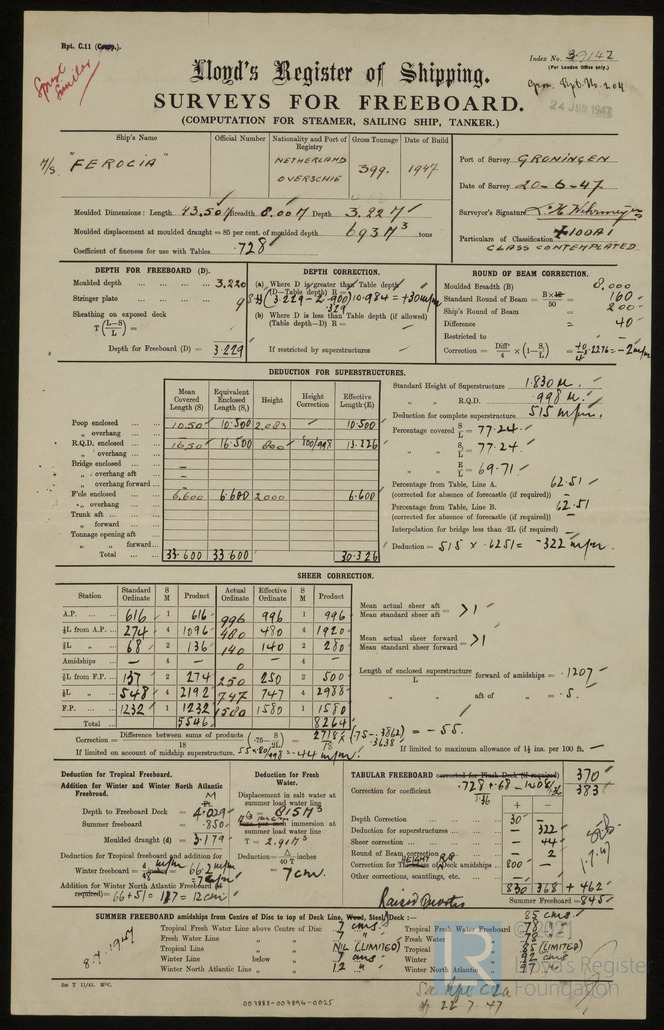 Rpt. C.11
Index No. 37142
(For London Office only.)
Lloyd's Register of Shipping.
24 JUN 1947
SURVEYS FOR FREEBOARD.
(COMPUTATION FOR STEAMER, SAILING SHIP, TANKER.)
Ship's Name Official Number Nationality and Port of Registry Gross Tonnage Date of Build
M/S. "FEROCIA" NETHERLAND OVERSCHIE 399. 1947
Port of Survey GRONINGEN
Date of Survey 20-6-47
Surveyor's Signature
Particulars of Classification +100A1
CLASS CONTEMPLATED
Moulded Dimensions: Length 43.50 M Breadth 8.00 M Depth 3.22 M
Moulded displacement at moulded draught = 85 per cent. of moulded depth 693 M³ tons
Coefficient of fineness for use with Tables .728
DEPTH FOR FREEBOARD (D).
Moulded depth ... 3.220
Stringer plate ... 9
Sheathing on exposed deck
T (L-S/L) =
Depth for Freeboard (D) = 3.229
DEPTH CORRECTION.
(a) Where D is greater than Table depth
(D-Table depth) R =
(3.229 - 2.900) 10.984 = +30 m/m
.329
(b) Where D is less than Table depth (if allowed)
(Table depth-D) R =
If restricted by superstructures
ROUND OF BEAM CORRECTION.
Moulded Breadth (B) 8.000
Standard Round of Beam = B×12/50 = 160
Ship's Round of Beam = 200
Difference = 40
Restricted to
Correction = Diff/4 × (1-S₁/L) = 40/4 × .2276 = -2 m/m
DEDUCTION FOR SUPERSTRUCTURES.
Mean Covered Length (S) Equivalent Enclosed Length (S₁) Height Height Correction Effective Length (E)
Poop enclosed 10.50 10.500 2.083 10.500
" overhang
R.Q.D. enclosed 16.50 16.500 800 800/998 13.226
" overhang
Bridge enclosed —
" overhang aft —
" overhang forward
F'cle enclosed 6.600 6.600 2.000 6.600
" overhang
Trunk aft
" forward
Tonnage opening aft
" " forward
Total 33.600 33.600 30.326
Standard Height of Superstructure 1.830 M.
" " R.Q.D. .998 M.
Deduction for complete superstructure 515 m/m.
Percentage covered S/L = 77.24
" " S₁/L = 77.24
" " E/L = 69.71
Percentage from Table, Line A. 62.51
(corrected for absence of forecastle (if required)) —
Percentage from Table, Line B. 62.51
(corrected for absence of forecastle (if required)) —
Interpolation for bridge less than ·2L (if required) —
Deduction = 515 × .6251 = -322 m/m.
SHEER CORRECTION.
Station Standard Ordinate S M Product Actual Ordinate Effective Ordinate S M Product
A.P. 616 1 616 996 996 1 996
⅙L from A.P. 274 4 1096 480 480 4 1920
⅓L " 68 2 136 140 140 2 280
Amidships — 4 — 0 — 4 —
⅓L from F.P. 137 2 274 250 250 2 500
⅙L " 548 4 2192 747 747 4 2988
F.P. 1232 1 1232 1580 1580 1 1580
Total 5546 8264
Mean actual sheer aft
Mean standard sheer aft = >1
Mean actual sheer forward
Mean standard sheer forward = >1
Length of enclosed superstructure/L forward of amidships = .1207
" " aft of " = .5
Correction = Difference between sums of products/18 (·75 - S/2L) = 2718/18 (.75-.3862) = -55.
.3638
If limited on account of midship superstructure. 55×80/998 = -44 m/m.
If limited to maximum allowance of 1½ ins. per 100 ft. —
Deduction for Tropical Freeboard.
Addition for Winter and Winter North Atlantic Freeboard.
Depth to Freeboard Deck = 4.029
Summer freeboard = .850
Moulded draught (d) = 3.179
Deduction for Tropical freeboard and addition for
Winter freeboard = 66.2 m/m
= 7 c/m
Addition for Winter North Atlantic Freeboard (if
required) = 66+51 = 117 = 12 c/m
Deduction for Fresh Water.
Displacement in salt water at
summer load water line
Δ = 815 M³
immersion at
summer load water line
T = 2.91 M³
Deduction = Δ/40 T inches
= 7 cm.
TABULAR FREEBOARD corrected for Flush Deck (if required) 370
Correction for coefficient .728+.68/1.36 383
+ -
Depth Correction 30 —
Deduction for superstructures — 322
Sheer correction — 44
Round of Beam correction — 2
Correction for Thickness of Deck amidships HEIGHT R.Q. 800 —
Other corrections, scantlings, etc.
830 368 + 462
Summer Freeboard = 845
Raised Quarter
SUMMER FREEBOARD amidships from Centre of Disc to top of Deck Line, Wood, Steel Deck :— 85 cms.
Tropical Fresh Water Line above Centre of Disc 7 cms. Tropical Fresh Water Freeboard 78
Fresh Water Line " " 7 " Fresh Water " 78
Tropical Line " " NIL (LIMITED) Tropical " 85 (LIMITED)
Winter Line below " 7 cms Winter " 92 cms
Winter North Atlantic Line " " 12 " Winter North Atlantic " 97
8.7.1947
5m T 11/41. MPC.
22.7.47
007888-007894-0025
© 2021
LR
Lloyd's Register
Foundation